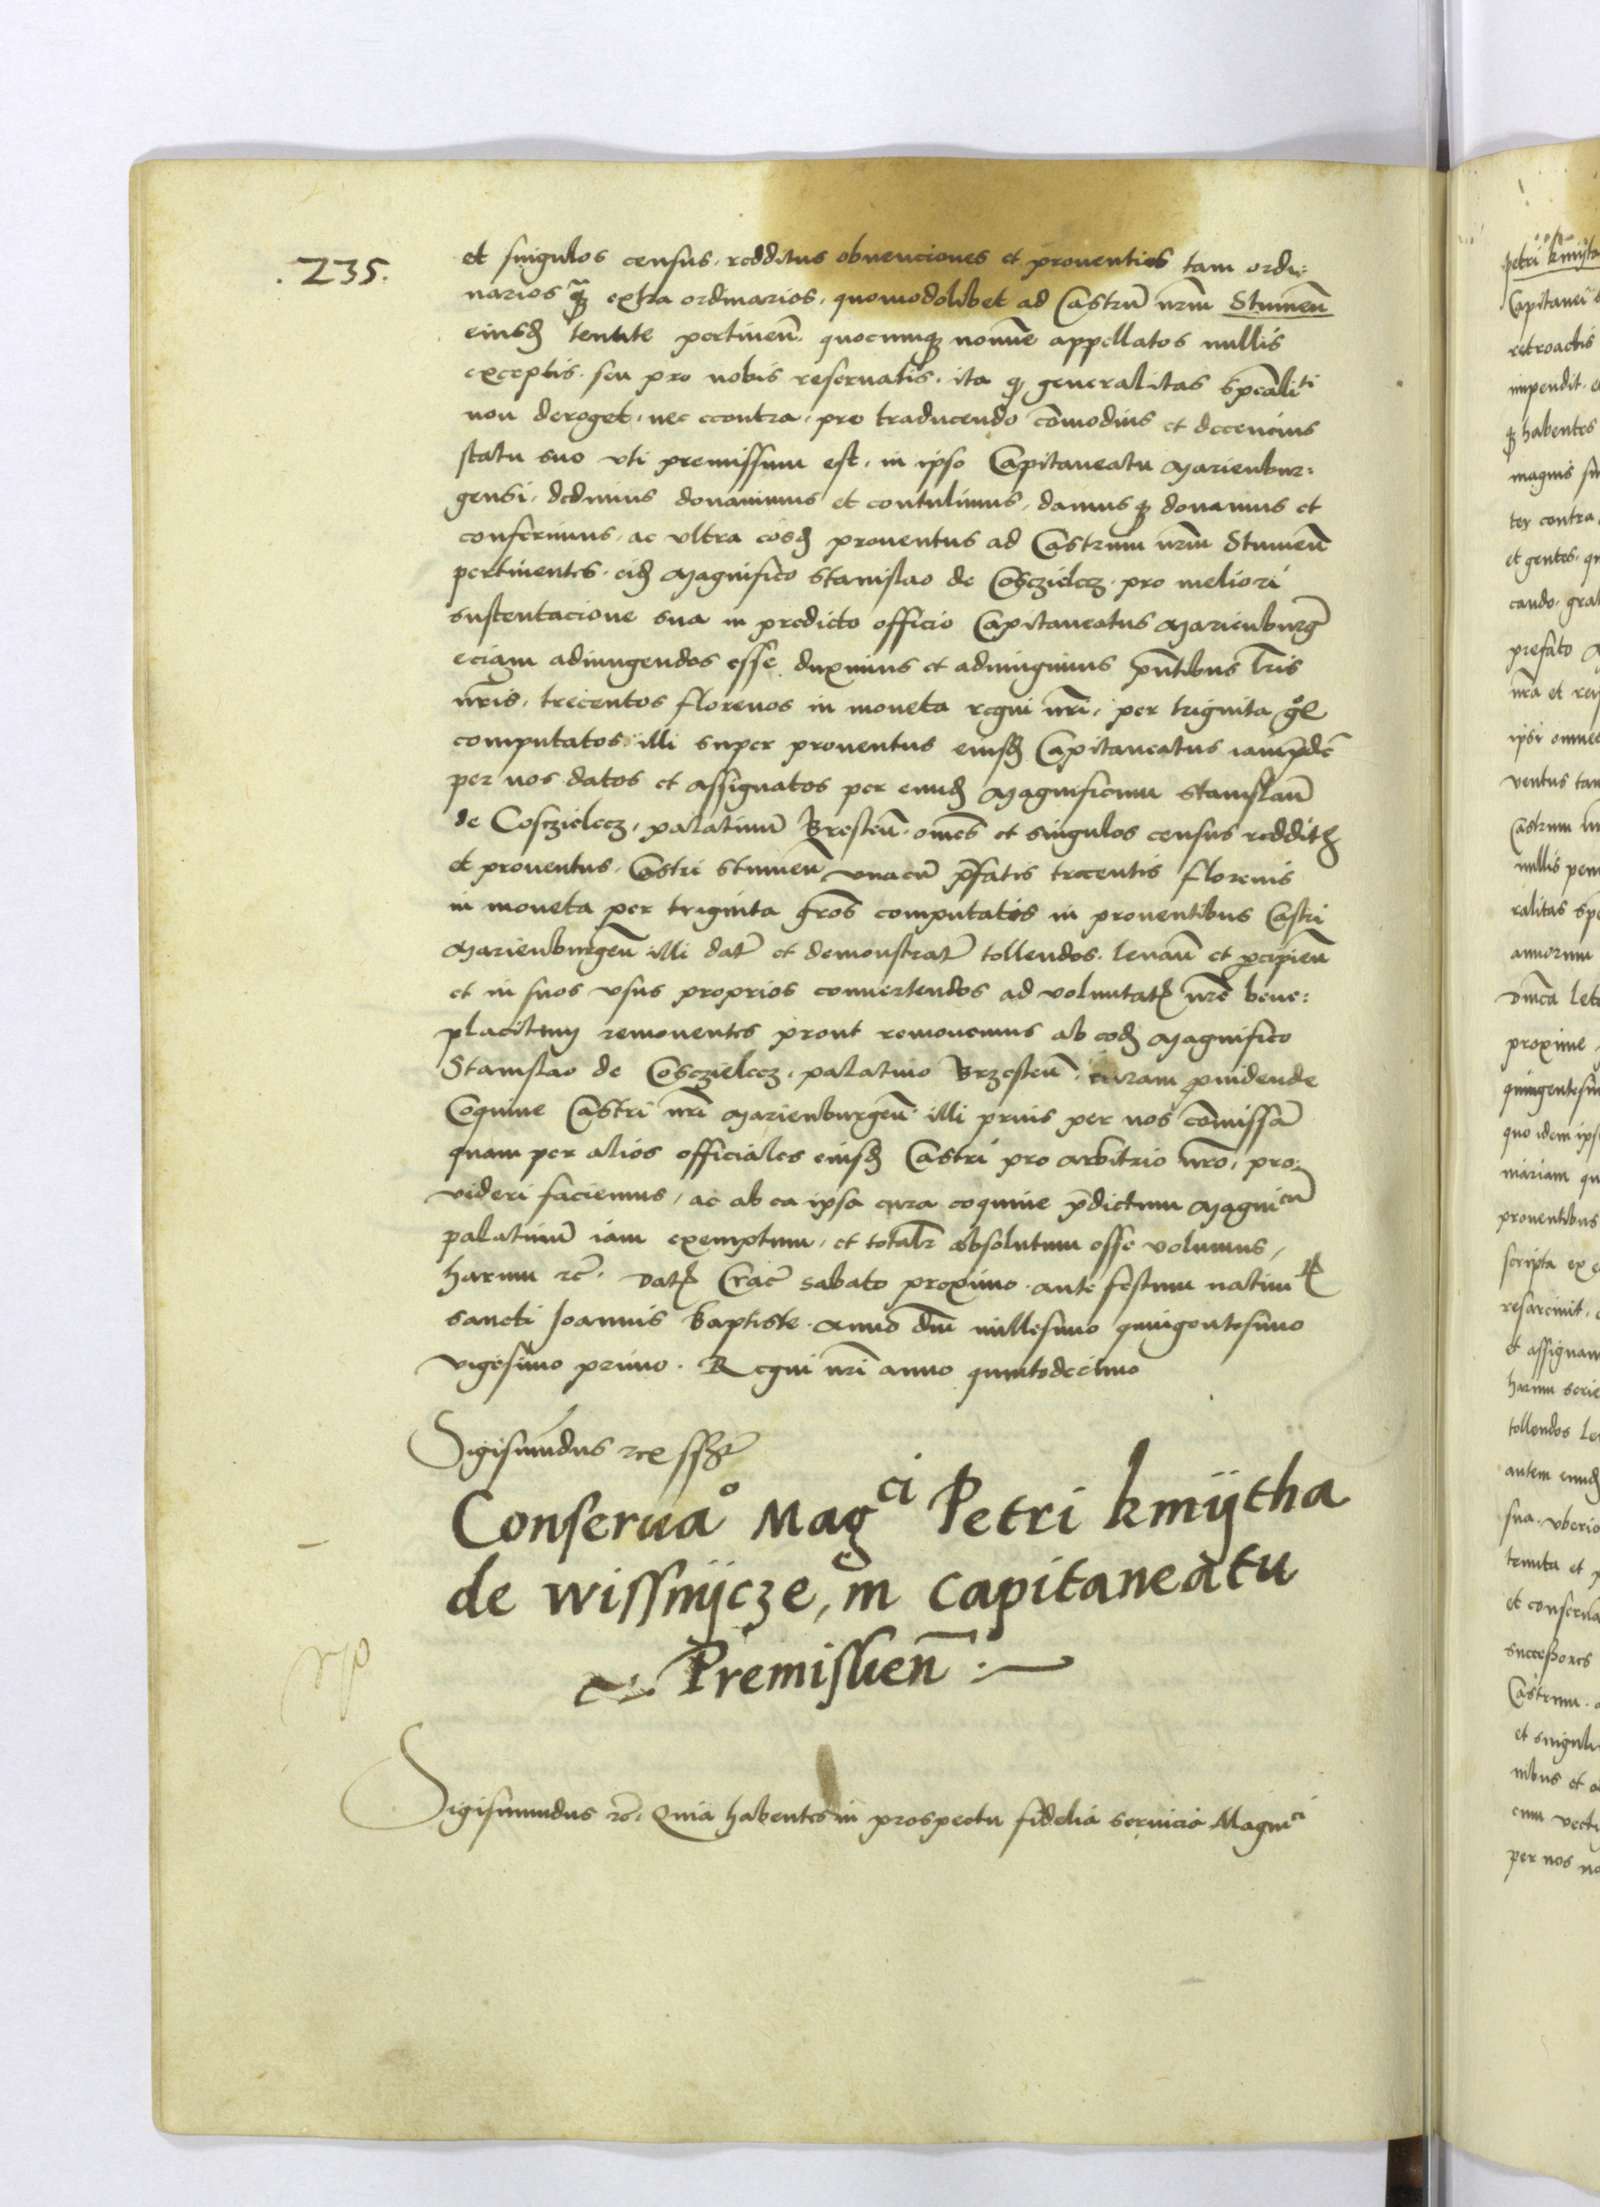 .235.
et singulos census, redditus obvenciones et proventus tam ordi:
narios q̃ȝ extra ordinarios, quomodolibet ad Castrũ nr̃m Stumeñ
eiusdȝ tenute pertineñ. quocunqȝ nomine appellatos nullis
exceptis. seu pro nobis reservatis. ita qȝ generalitas sp̃caliti
non deroget, nec econtra, pro traducendo com̃odius et decencius
statu suo uti premissum est, in ipso Capitaneatu Marienbur:
gensi, dedimus donavimus et contulimus, damusqȝ donamus et
conferimus, ac ultra eosdȝ proventus ad Castrum nr̃m Stumeñ
pertinentes. eidȝ Magnifico Stanislao de Cosczielecz. pro meliori
sustentacione sua in predicto officio Capitaneatus Marienburg̃
eciam adiungendos esse duximus et adiungimus p̃ntibus lr̃is
nr̃is, trecentos florenos in moneta regni nr̃i, per triginta gͦ
computatos illi super proventus eiusdȝ Capitaneatus iamp̃dc̃
per nos datos et assignatos per eundȝ Magnificum Stanislaũ
de Cosczielecz, palatinũ Bresteñ. om̃es et singulos census redditȝ
et proventus. Castri Stumeñ unacũ p̃fatis trecentis florenis
in moneta per triginta gros̃ computatis in proventibus Castri
Marienburgeñ illi dat̃ et demonstrat̃ tollendos. levañ et p̃cipieñ
et in suos usus proprios convertendos ad voluntatȝ nr̃e bene:
placitum removentes prout removemus ab eodȝ Magnifico
Stanislao de Cosczielecz. palatino Brzesteñ. curam p̃vidende
Coquine Castri nr̃i Marienburgeñ. illi prius per nos com̃issã
quam per alios officiales eiusdȝ Castri pro arbitrio nr̃o, pro:
videri faciemus, ac ab ea ipsa cura coquine p̃dictum Magnicũ
palatinũ iam exemptum, et totalr̃ absolutum esse volumus,
harum rc̃. Datȝ Crac̃ sabato proximo. ante festum nativi
sancti Joannis baptiste. anno dñi millesimo quingentesimo
vigesimo primo. Regni nr̃i anno quintodecimo
Sigismũdus rex sszt̃
Conservaͦ Magci Petri kmijtha
de wissnijcze, in capitaneatu
Premislieñ :~
Sigismundus rc̃. Quia habentes in prospectu fidelia servicia Magnici
petri kmijta
Capitanei
retroactis
impendit.
qȝ habentes
magnis
ter contra
et gentes.
cando.
prefato
nr̃a et
ipsi omnes
ventus tam
Castrum
nullis
ralitas
annorum
dñica
proxime
quingentesi
quo idem
proventibus
scripta ex
resarcivit.
et assignam
harum serie
tollendos
autem eundȝ
sua. uberio
tenuta et
et conserva
successores
Castrum.
et singul
nibus et
cum
per nos